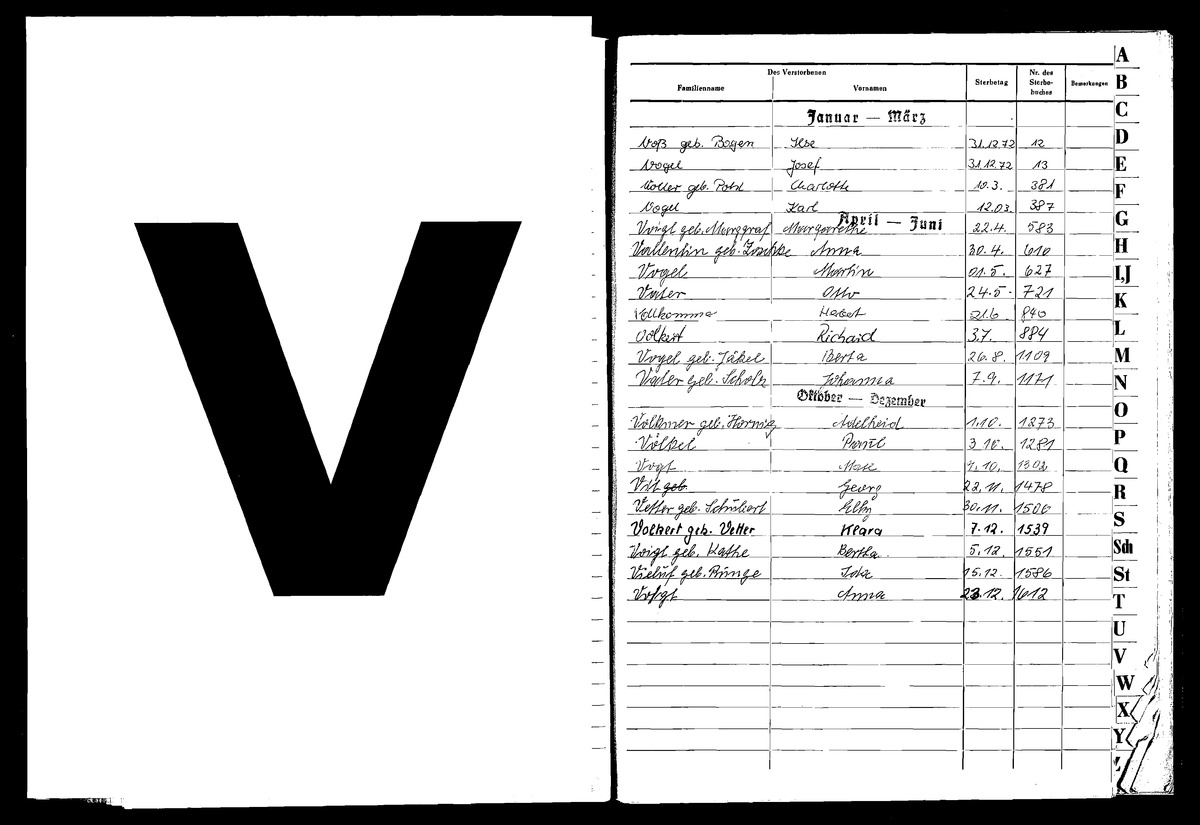 V
Des Verstorbenen
Familienname Vornamen Sterbetag Nr. des Sterbe-buches Bemerkungen
Januar — März
Voß geb. Bogen Ilse 31.12.72 12
Vogel Josef 31.12.72 13
Voller geb. Pohl Charlotte 10.3. 381
Vogel Karl 12.03. 387
April — Juni
Voigt geb. Marggraf Margarethe 22.4. 583
Vallentin geb. Anna 30.4. 610
Vogel Martin 01.5. 627
Vater Otto 24.5. 721
Vollkomma 21.6. 840
Volkert Richard 3.7. 884
Vogel geb. Jäkel Berta 26.8. 1109
Vater geb. Scholz Johanna 7.9. 1171
Oktober — Dezember
Volkmer geb. Hornig Adelheid 1.10. 1273
Völkel Paul 3.10. 1281
Vogt Max 1302
Veit geb. Georg 22.11. 1478
Vetter geb. Schubert Elly 30.11. 1506
Volkert geb. Vetter Klara 7.12. 1539
Voigt geb. Kathe Bertha 5.12. 1551
Vieluf geb. Runge Ida 15.12. 1586
Voigt Anna 23.12. 1612
A
B
C
D
E
F
G
H
I,J
K
L
M
N
O
P
Q
R
S
Sch
St
T
U
V
W
X
Y
Z